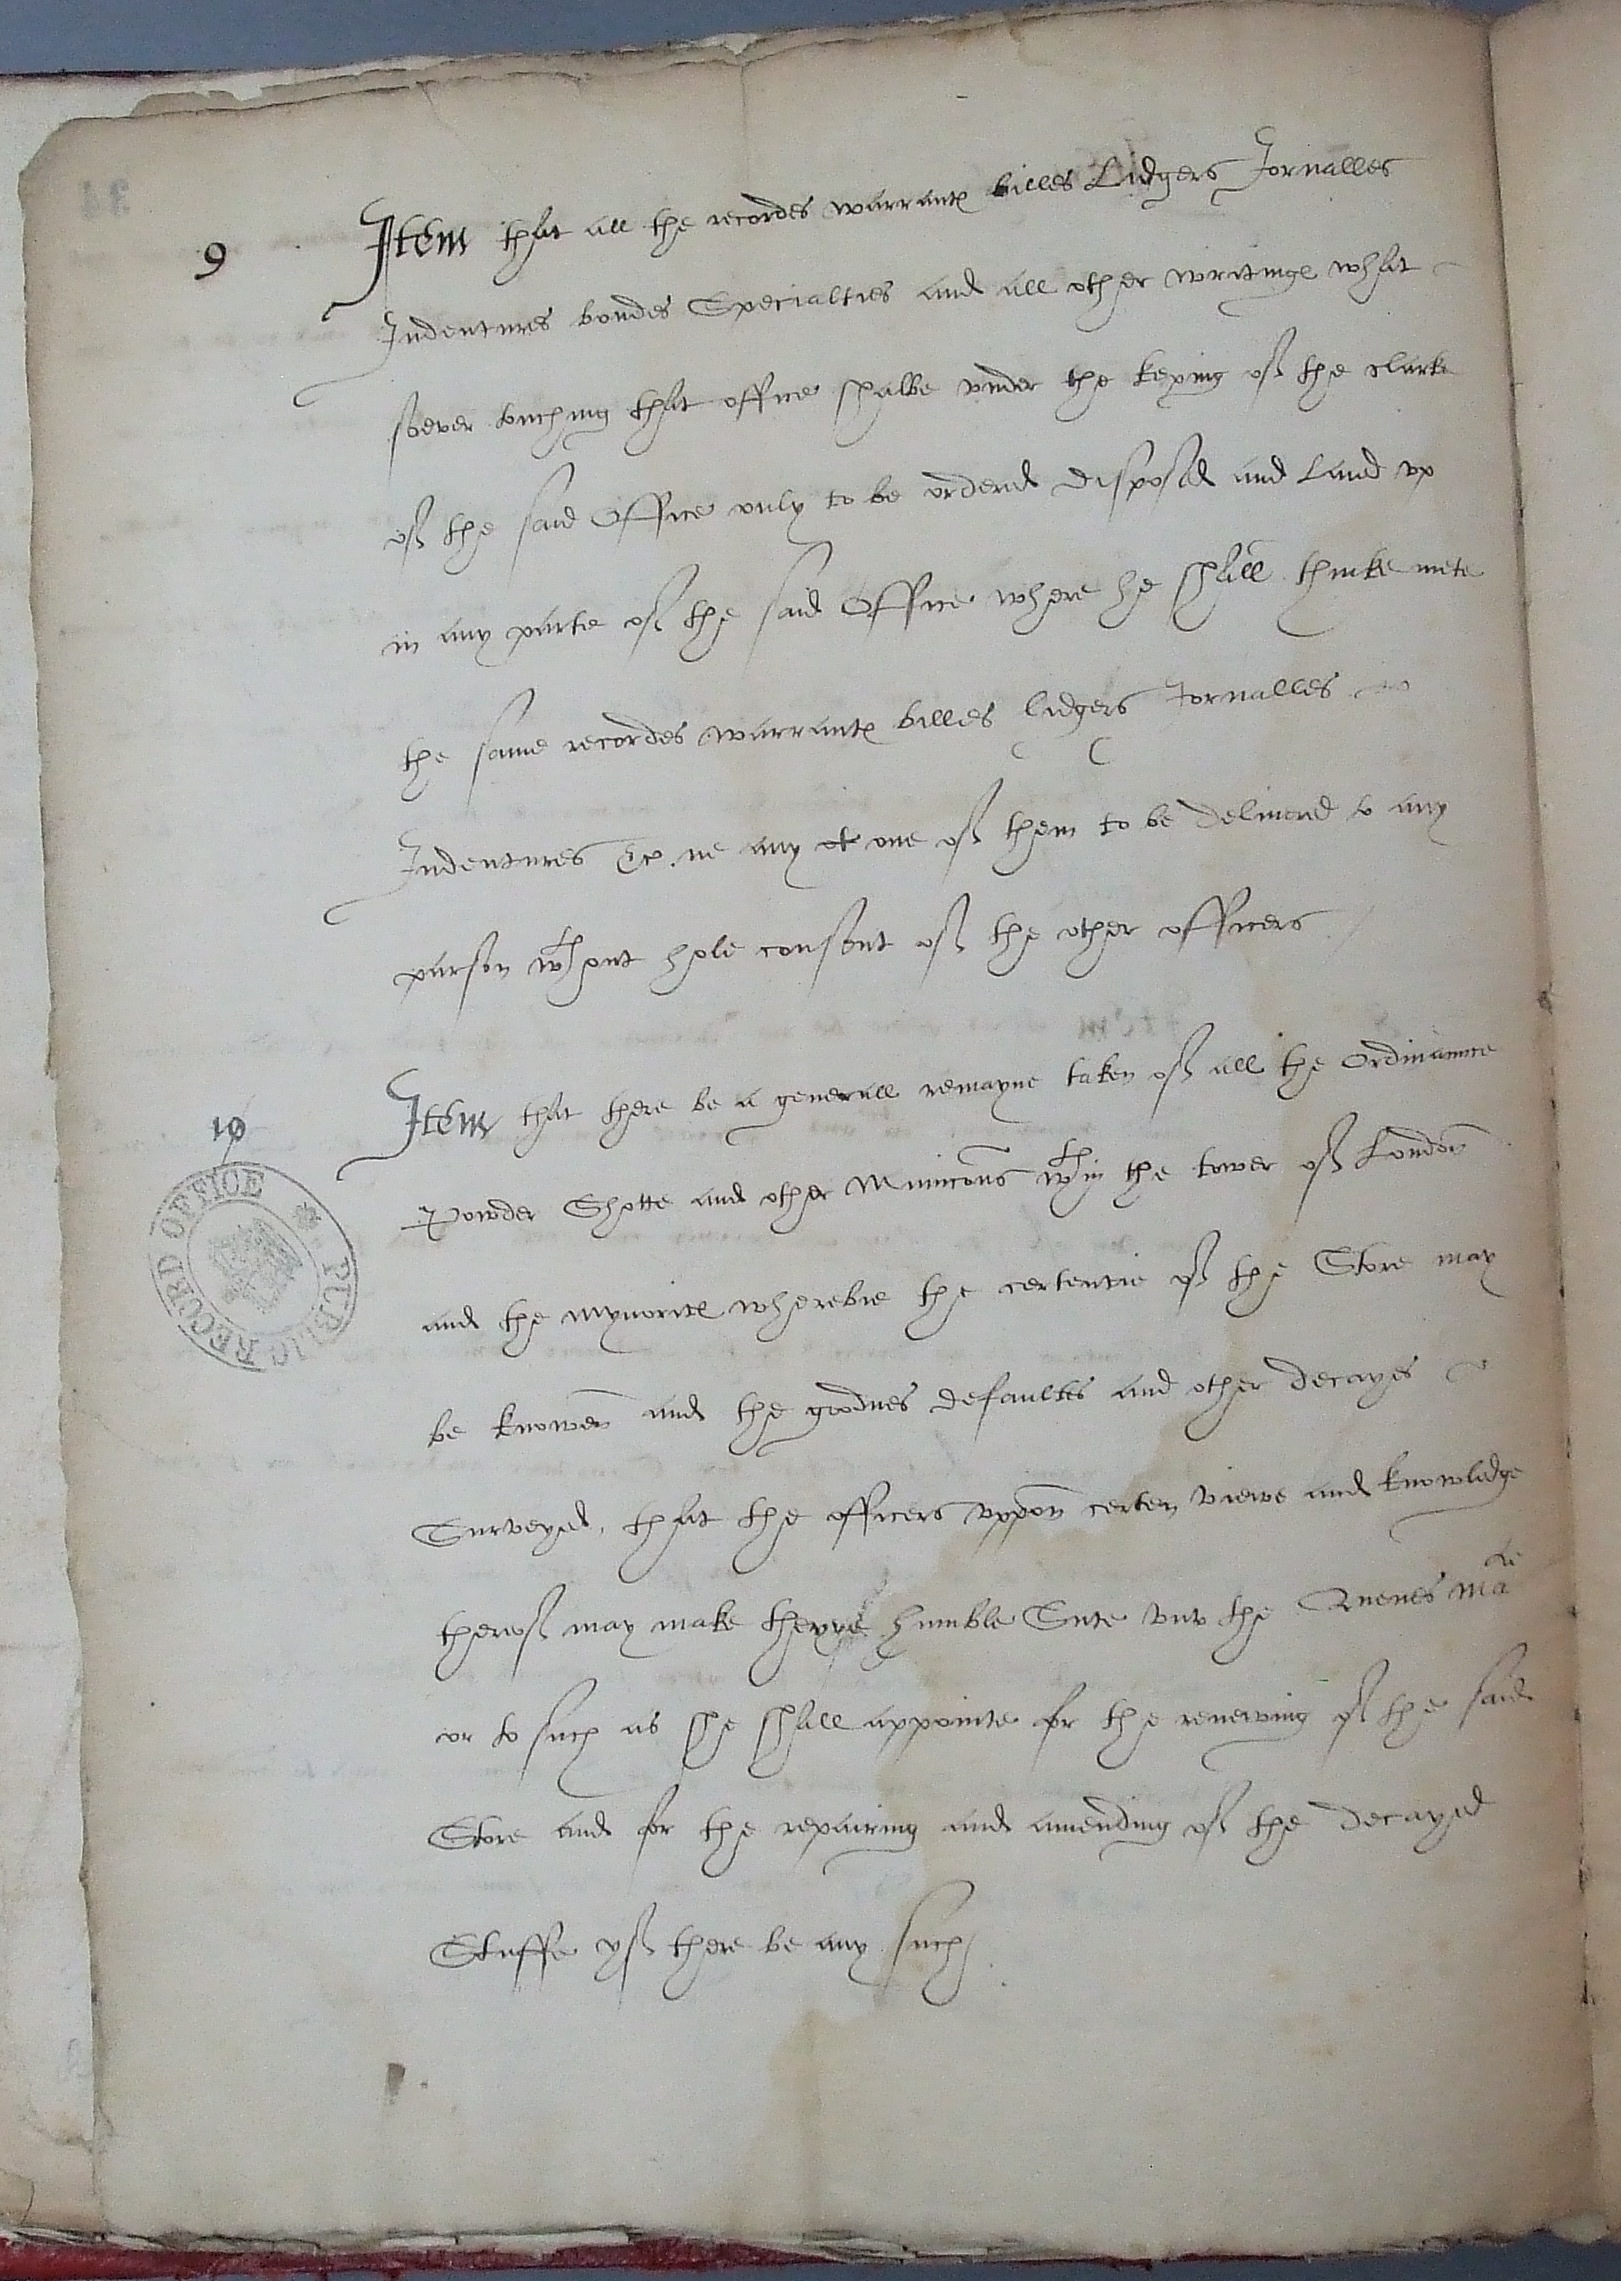 9 Item that all the recordes warrantes billes Lidgers Jornalles
Indentures bondes Specialties and all other writinges what
soever touching that office shalbe vnder the keping of the clarke
of the said Office only to be ordered disposed and Laid vp
in any parte of the said Office where he shall thinke mete
the same recordes warrantes billes lidgers Jornalles
Indentures &c. ne any one of them to be deliuered to any
parson wth out hole consent of the other officers
10 Item that there be a generall remayne taken of all the Ordinaunce
Powder Shotte and other Municons wth in the tower of London
and the Mynorites wherebie the certentie of the Store may
be knowen and the goodnes defaultes and other decayes
Surveyed, that the officers vppon certen viewe and knowledge
thereof may make theyre humble Sute vnto the Quenes Matie
or to such as she shall appointe for the renewing of the said
Store and for the repairing and amending of the decayed
Stuffe yf there be any such
PUBLIC RECORD OFFICE